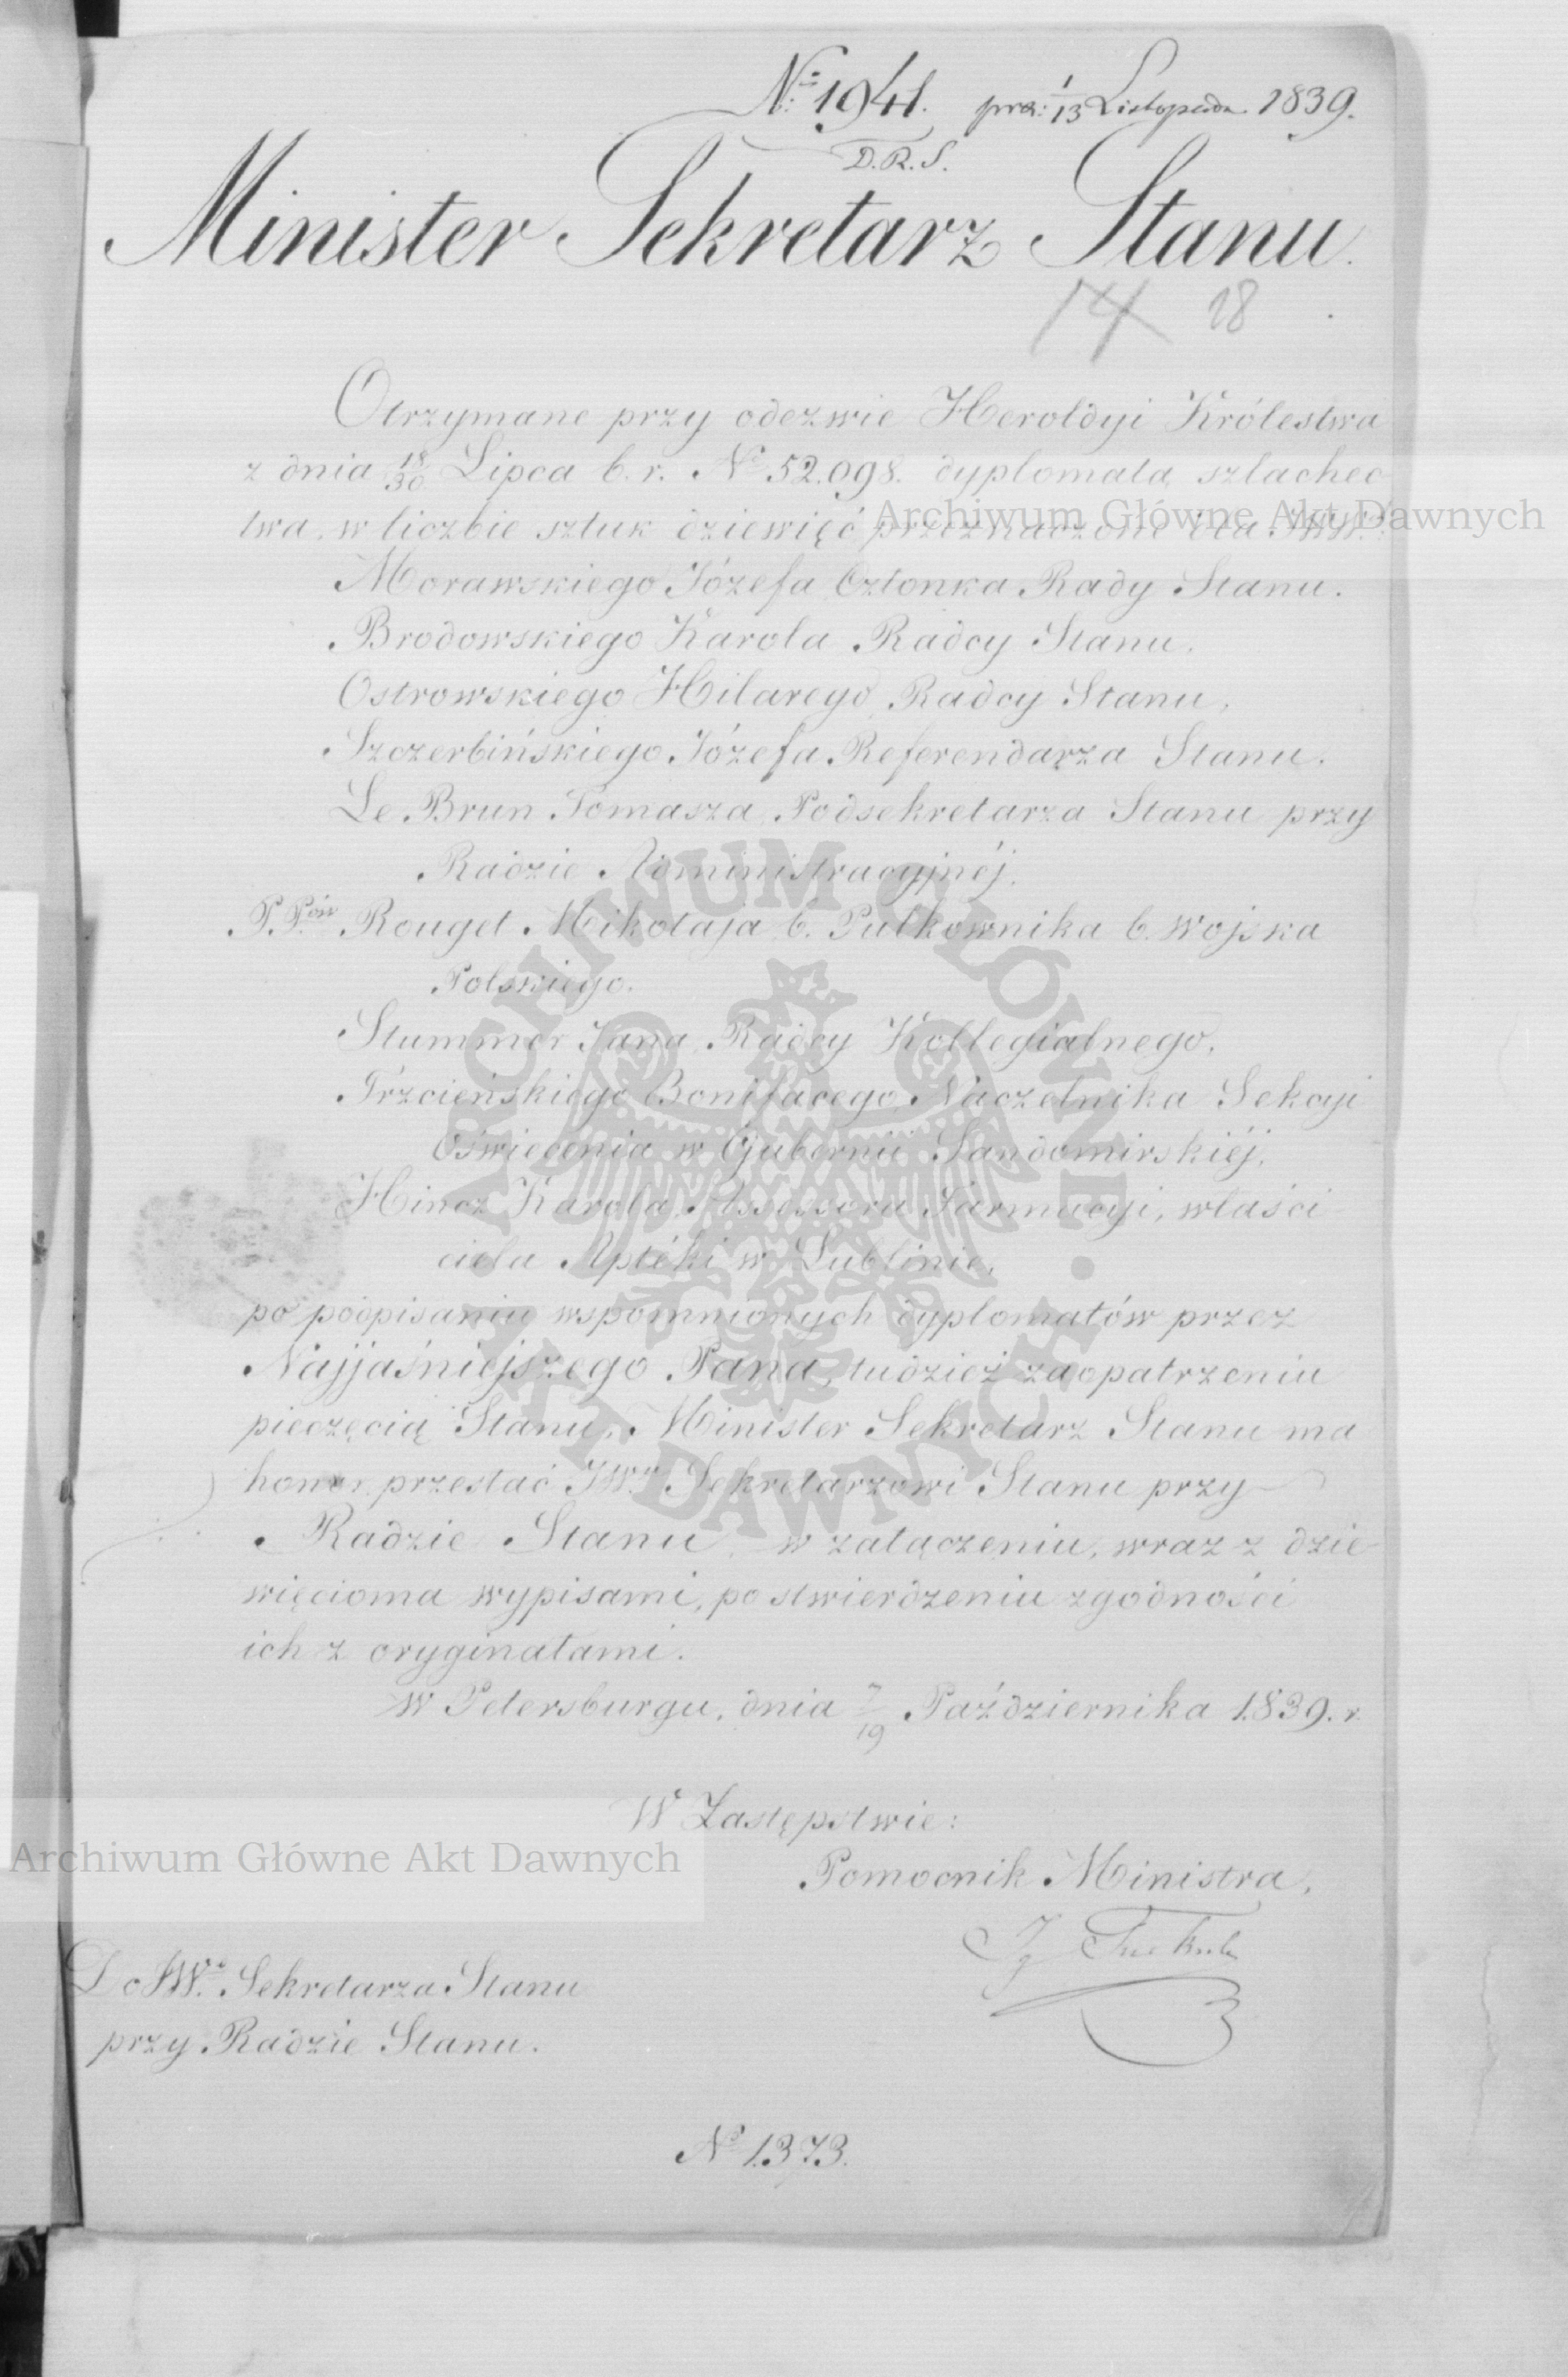 № 1941. prez: 1/13 Listopada 1839.
D.R.S.
Minister Sekretarz Stanu.
14 18
Otrzymane przy odezwie Heroldyi Królestwa
z dnia 18/30 Lipca b.r. № 52.098. dyplomata szlachec-
twa, w liczbie sztuk dziewięć przeznaczone dla JWW.
Archiwum Główne Akt Dawnych
Morawskiego Józefa Członka Rady Stanu.
Brodowskiego Karola Radcy Stanu.
Ostrowskiego Hilarego Radcy Stanu,
Szczerbińskiego Józefa Referendarza Stanu.
Le Brun Tomasza Podsekretarza Stanu przy
Radzie Administracyjnéj.
P.P.ów Rouget Mikołaja b. Pułkownika b. Wojska
Polskiego.
Stummer Jana Radcy Kollegialnego.
Trzcieńskiego Bonifacego Naczelnika Sekcyi
Oświecenia w Gubernii Sandomirskiéj.
Hincz Karola Assessora Farmacyi, właści-
ciela Aptéki w Lublinie,
po podpisaniu wspomnionych dyplomatów przez
Najjaśniejszego Pana, tudzież zaopatrzeniu
pieczęcią Stanu, Minister Sekretarz Stanu ma
honor przesłać JW.u Sekretarzowi Stanu przy
Radzie Stanu w załączeniu, wraz z dzie-
więcioma wypisami, po stwierdzeniu zgodności
ich z oryginałami.
w Petersburgu, dnia 7/19 Października 1839. r.
W Zastępstwie:
Pomocnik Ministra,
Archiwum Główne Akt Dawnych
Ig Turkułł
Do JW.o Sekretarza Stanu
przy Radzie Stanu.
№ 1373.
ARCHIWUM GŁÓWNE · AKT DAWNYCH ·